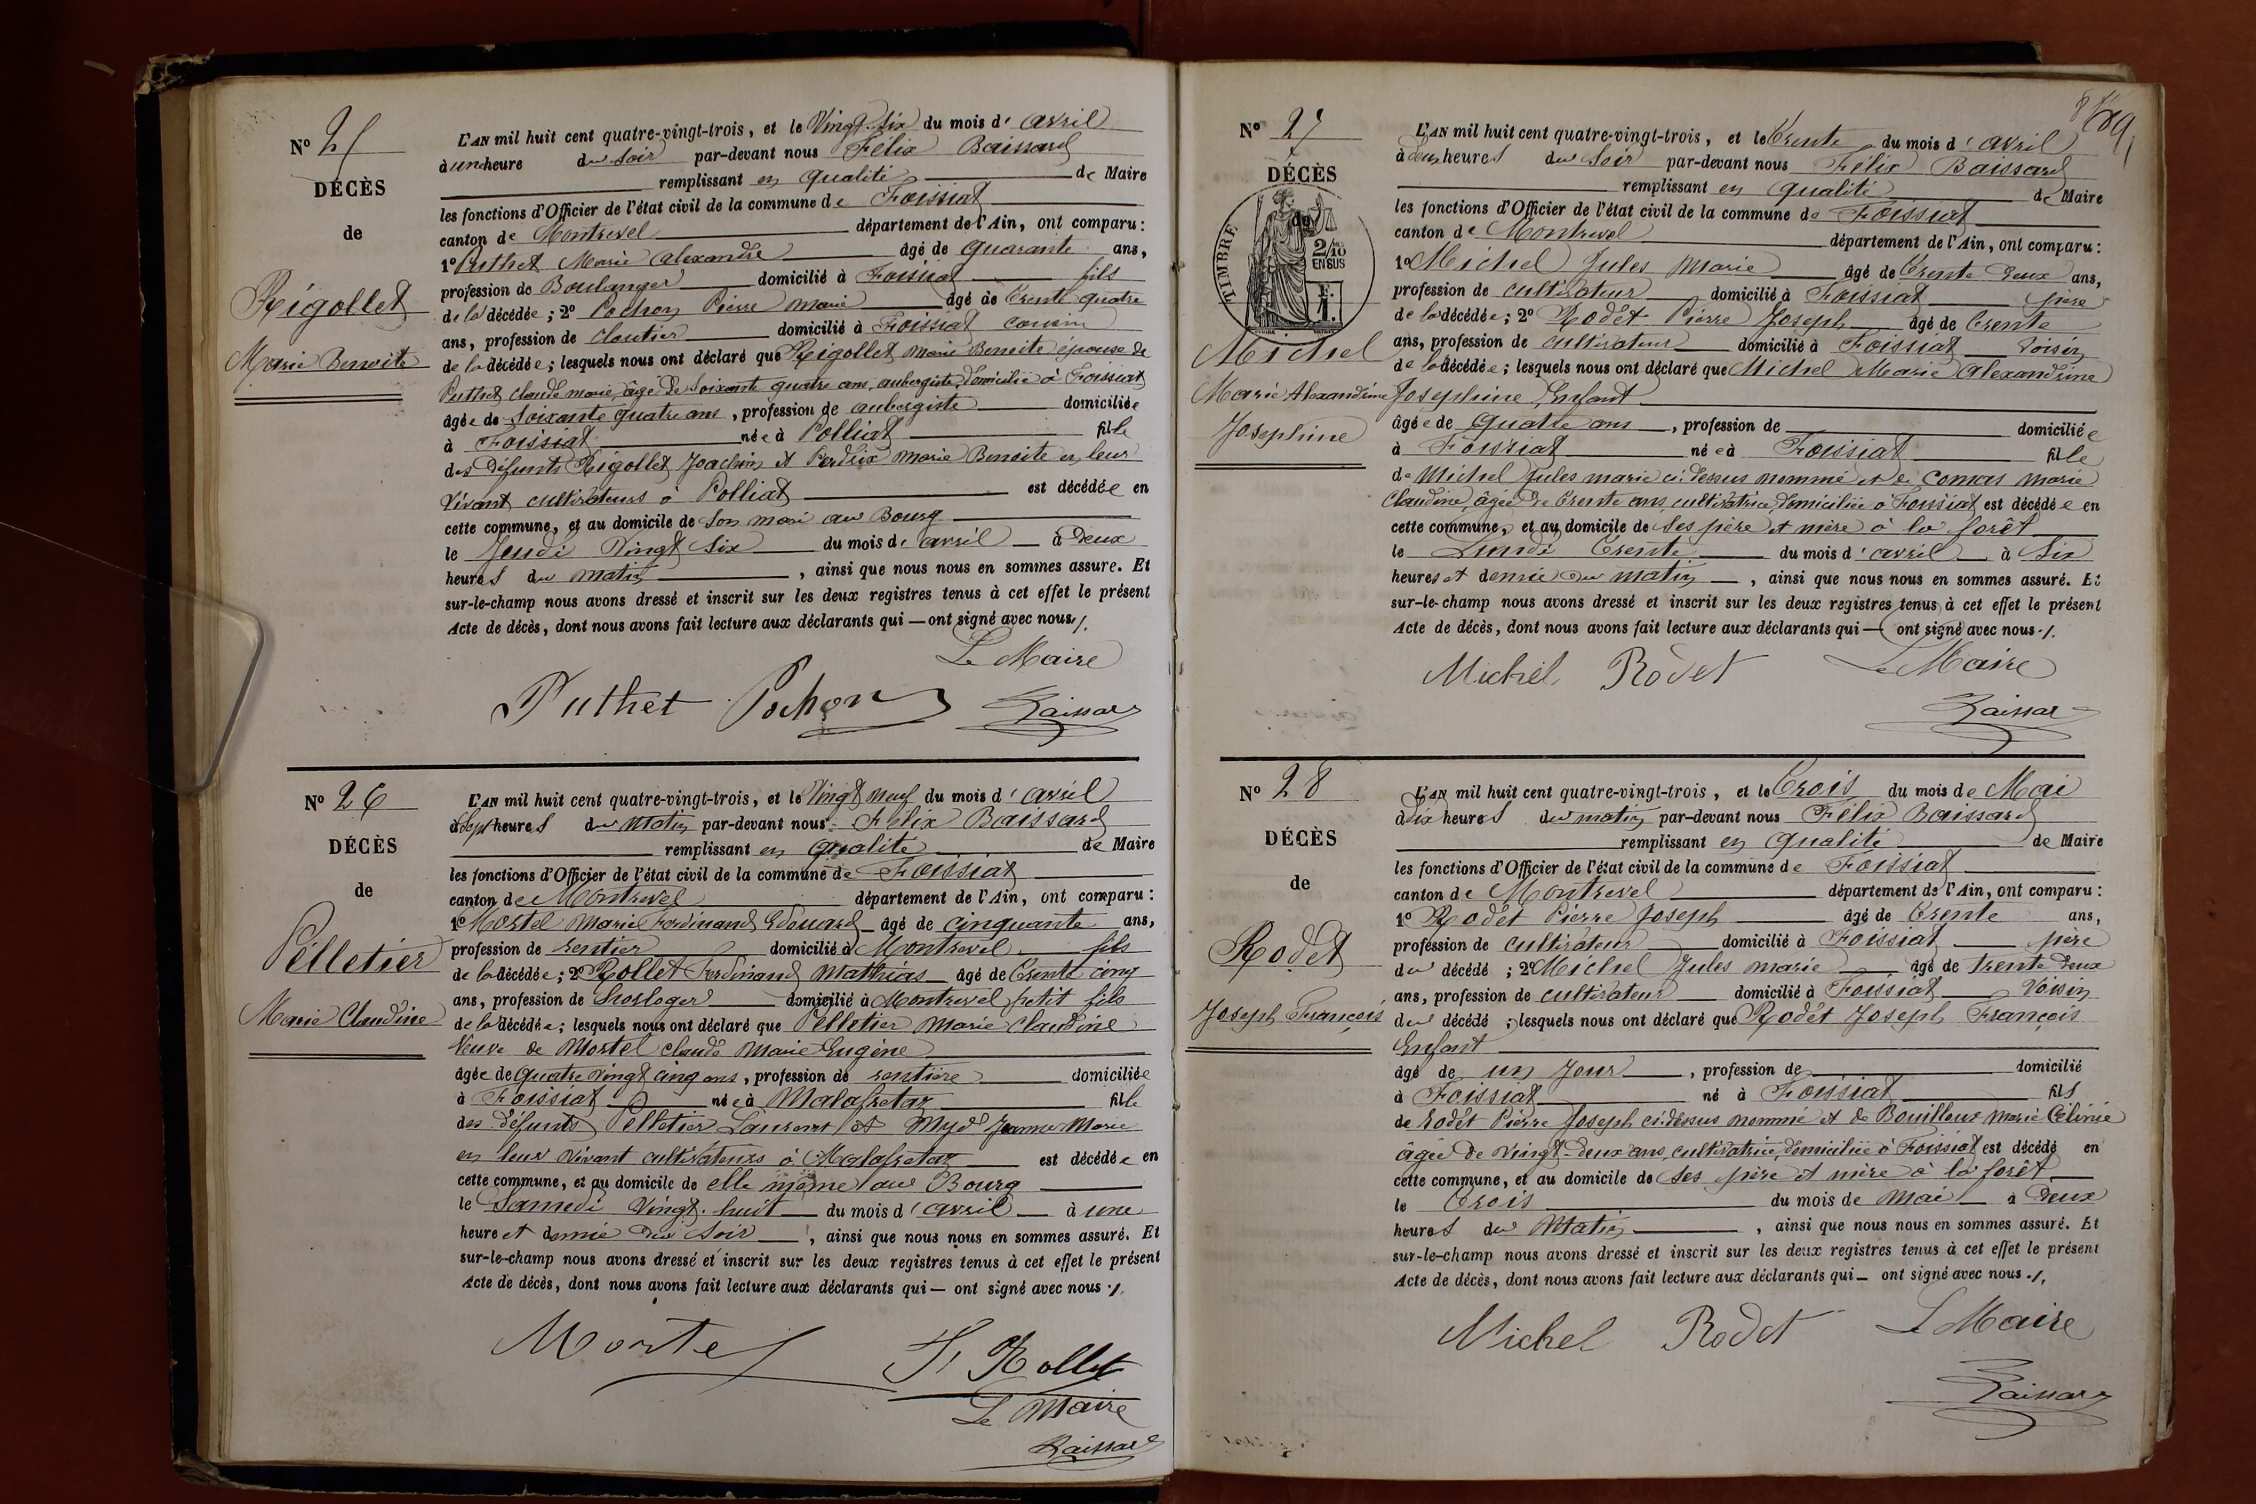 Nº 25
DÉCÈS
de
Rigollet
Marie Benoite
L'AN mil huit cent quatre-vingt-trois, et le Vingt-six du mois d'avril
à une heure du soir par-devant nous Félix Baissard
remplissant en qualité de Maire
les fonctions d'Officier de l'état civil de la commune de Foissiat
canton de Montrevel département de l'Ain, ont comparu :
1º Puthet Marie Alexandre âgé de quarante ans,
profession de Boulanger domicilié à Foissiat fils
de la décédée ; 2º Pochon Pierre Marie âgé de trente quatre
ans, profession de cloutier domicilié à Foissiat cousin
de la décédée ; lesquels nous ont déclaré que Rigollet Marie Benoite épouse de
Puthet Claude Marie, âgé de soixante quatre ans, aubergiste, domicilié à Foissiat
âgée de soixante quatre ans, profession de aubergiste domiciliée
à Foissiat née à Polliat fille
des défunts Rigollet Joachim et Perdrix Marie Benoite en leur
vivant cultivateurs à Polliat est décédée en
cette commune, et au domicile de son mari au Bourg
le Jeudi Vingt six du mois d'avril à deux
heures du matin, ainsi que nous nous en sommes assuré. Et
sur-le-champ nous avons dressé et inscrit sur les deux registres tenus à cet effet le présent
Acte de décès, dont nous avons fait lecture aux déclarants qui — ont signé avec nous ./.
Le Maire
Puthet Pochon Baissard
Nº 26
DÉCÈS
de
Pelletier
Marie Claudine
L'AN mil huit cent quatre-vingt-trois, et le Vingt neuf du mois d'avril
à Sept heures du Matin par-devant nous Félix Baissard
remplissant en qualité de Maire
les fonctions d'Officier de l'état civil de la commune de Foissiat
canton de Montrevel département de l'Ain, ont comparu :
1º Mortel Marie Ferdinand Edouard âgé de cinquante ans,
profession de rentier domicilié à Montrevel fils
de la décédée ; 2º Rollet Ferdinand Mathias âgé de trente cinq
ans, profession de horloger domicilié à Montrevel petit fils
de la décédée ; lesquels nous ont déclaré que Pelletier Marie Claudine
Veuve de Mortel Claude Marie Eugène
âgée de quatre vingt cinq ans, profession de rentière domiciliée
à Foissiat née à Malafretaz fille
des défunts Pelletier Laurent et Myd Jeanne Marie
en leur vivant cultivateurs à Malafretaz est décédée en
cette commune, et au domicile de elle même au Bourg
le Samedi Vingt-huit du mois d'avril à une
heure et demie du soir, ainsi que nous nous en sommes assuré. Et
sur-le-champ nous avons dressé et inscrit sur les deux registres tenus à cet effet le présent
Acte de décès, dont nous avons fait lecture aux déclarants qui — ont signé avec nous ./.
Mortel F. Rollet
Le Maire
Baissard
Nº 27
DÉCÈS
de
TIMBRE
2/10
EN SUS
Michel
Marie Alexandrine
Josephine
L'AN mil huit cent quatre-vingt-trois, et le Trente du mois d'avril
à deux heures du soir par-devant nous Félix Baissard
remplissant en qualité de Maire
les fonctions d'Officier de l'état civil de la commune de Foissiat
canton de Montrevel département de l'Ain, ont comparu :
1º Michel Jules Marie âgé de trente deux ans,
profession de cultivateur domicilié à Foissiat père
de la décédée ; 2º Rodet Pierre Joseph âgé de trente
ans, profession de cultivateur domicilié à Foissiat voisin
de la décédée ; lesquels nous ont déclaré que Michel Marie Alexandrine
Josephine, Enfant
âgée de quatre ans, profession de domiciliée
à Foissiat née à Foissiat fille
de Michel Jules Marie ci-dessus nommé et de Comas Marie
Claudine, âgée de trente ans, cultivatrice, domiciliée à Foissiat est décédée en
cette commune, et au domicile de ses père et mère à la forêt
le Lundi Trente du mois d'avril à six
heures et demie du matin, ainsi que nous nous en sommes assuré. Et
sur-le-champ nous avons dressé et inscrit sur les deux registres tenus à cet effet le présent
Acte de décès, dont nous avons fait lecture aux déclarants qui — ont signé avec nous ./.
Michel Rodet Le Maire
Baissard
Nº 28
DÉCÈS
de
Rodet
Joseph François
L'AN mil huit cent quatre-vingt-trois, et le Trois du mois de Mai
à Dix heures du matin par-devant nous Félix Baissard
remplissant en qualité de Maire
les fonctions d'Officier de l'état civil de la commune de Foissiat
canton de Montrevel département de l'Ain, ont comparu :
1º Rodet Pierre Joseph âgé de trente ans,
profession de cultivateur domicilié à Foissiat père
du décédé ; 2º Michel Jules Marie âgé de trente deux
ans, profession de cultivateur domicilié à Foissiat Voisin
du décédé ; lesquels nous ont déclaré que Rodet Joseph François
Enfant
âgé de un Jour, profession de domicilié
à Foissiat né à Foissiat fils
de Rodet Pierre Joseph ci-dessus nommé et de Bouilloux Marie Célinie
âgée de vingt-deux ans, cultivatrice, domiciliée à Foissiat est décédé en
cette commune, et au domicile de ses père et mère à la forêt
le Trois du mois de Mai à Deux
heures du Matin, ainsi que nous nous en sommes assuré. Et
sur-le-champ nous avons dressé et inscrit sur les deux registres tenus à cet effet le présent
Acte de décès, dont nous avons fait lecture aux déclarants qui — ont signé avec nous ./.
Michel Rodet Le Maire
Baissard